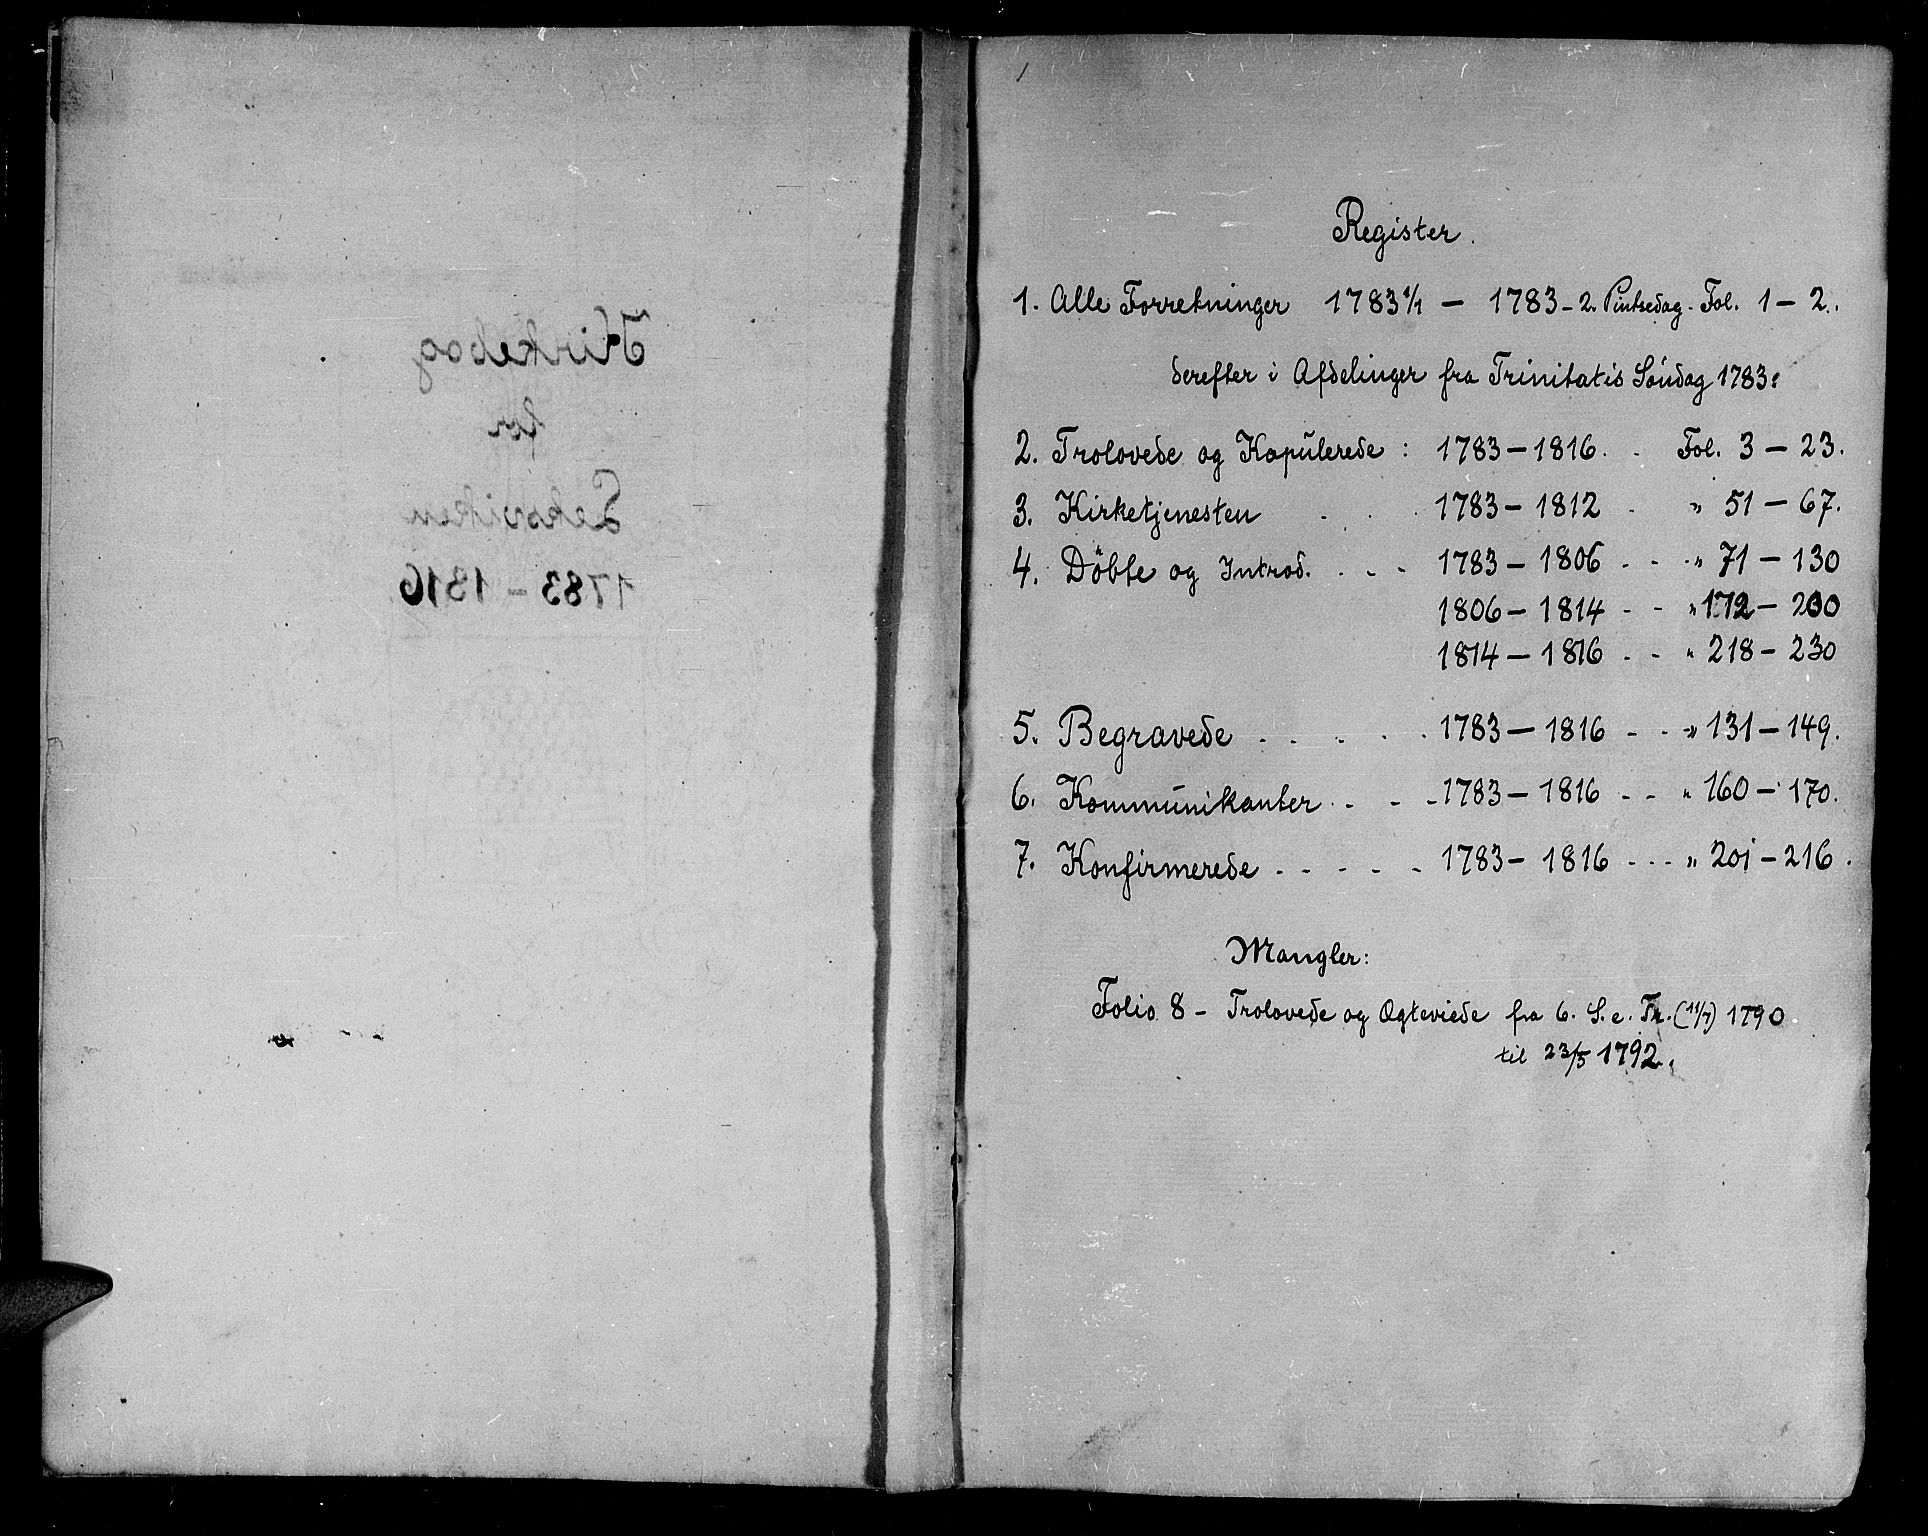 Kirkebog
for
Leksviken
1783 - 1816
Register.
1. Alle Forretninger 1783 1/1 — 1783 - 2. Pintsedag. Fol. 1 — 2.
derefter i Afdelinger fra Trinitatis Söndag 1783:
2. Trolovede og Kopulerede : 1783 — 1816. . Fol. 3 — 23.
3. Kirketjenesten . . . 1783 — 1812 . " 51 — 67.
4. Döbte og Introd. . . . 1783 — 1806 . . . " 71 — 130
1806 — 1814 - - " 172 — 200
1814 — 1816 - - " 218 — 230
5. Begravede . . . . . 1783 — 1816 - - " 131 — 149.
6. Kommunikanter . . . 1783 — 1816 - - " 160 — 170.
7. Konfirmerede . . . . . 1783 — 1816 - - - " 201 — 216.
Mangler:
Folio 8 — Trolovede og Ægteviede fra 6. S. e. Tr. (11/7) 1790
til 23/5 1792.